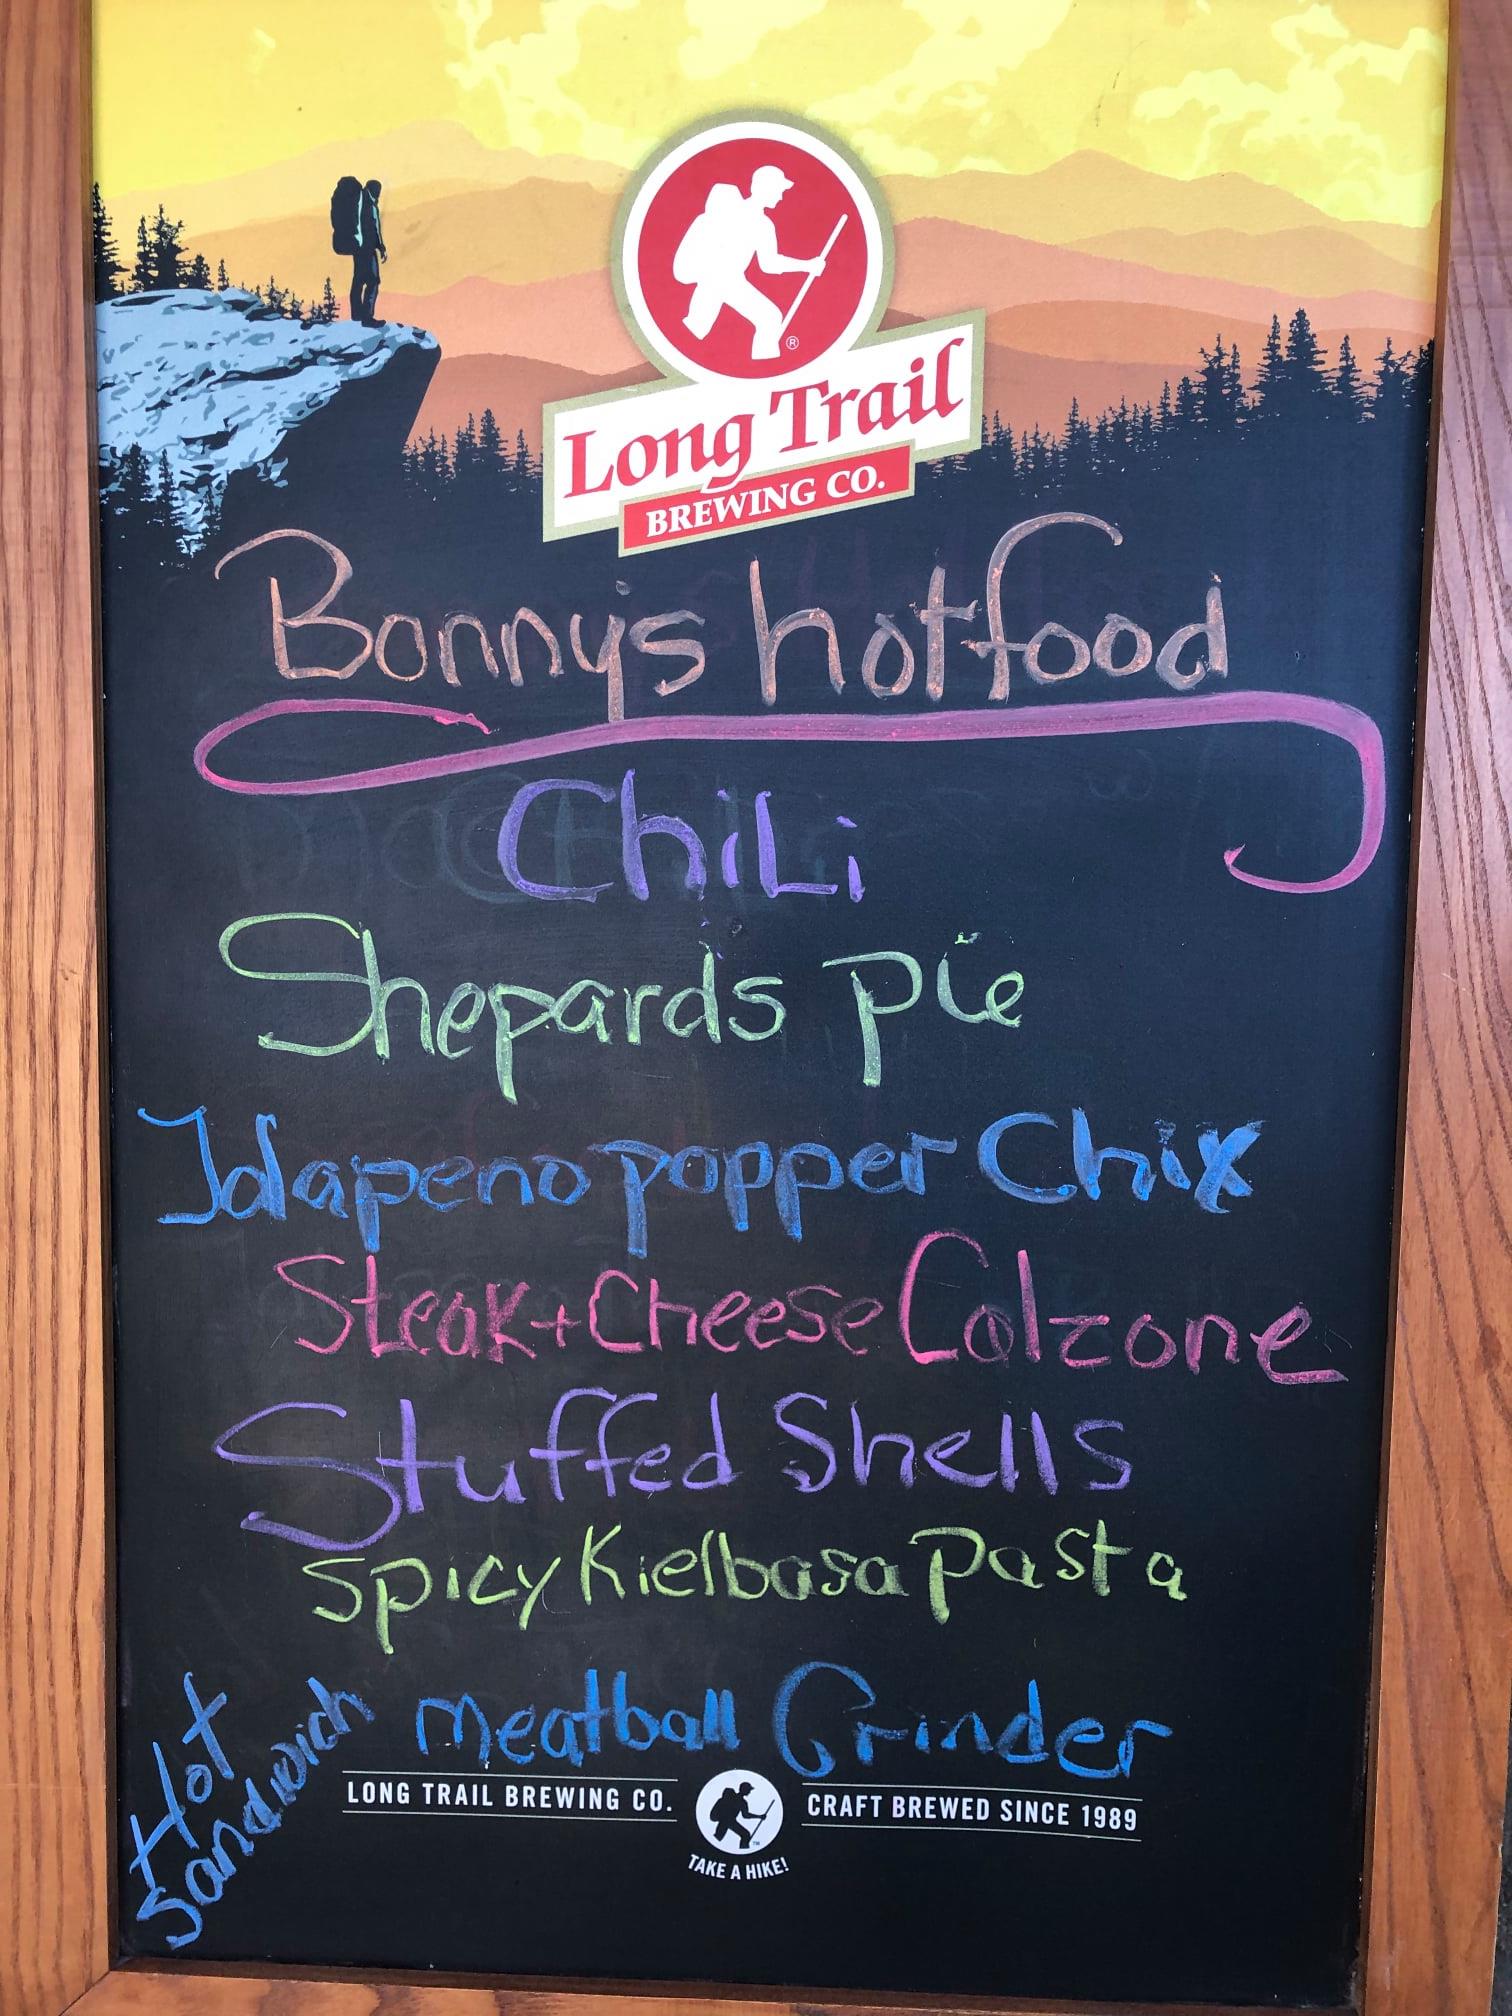 Long Trail
BREWING CO.
Bonny's hot food
ChiLi
Shepards Pie
Jalapeno popper Chix
Steak + Cheese Calzone
Stuffed Shells
Spicy Kielbasa Pasta
Hot Sandwich
Meatball Grinder
LONG TRAIL BREWING CO.
CRAFT BREWED SINCE 1989
TAKE A HIKE!